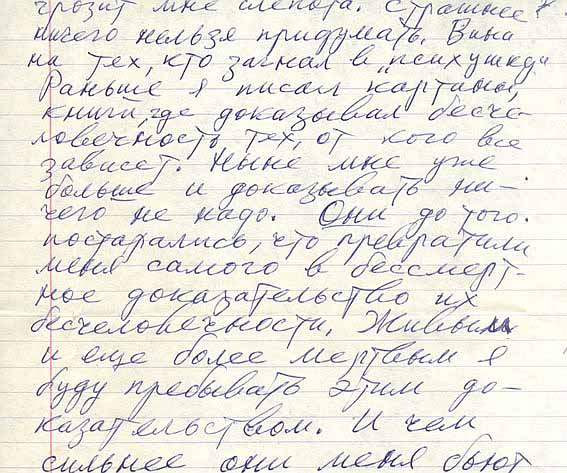 грозит мне слепота. Страшнее
ничего нельзя придумать. Вина
на тех, кто загнал в "психушку"
Раньше я писал картины,
книги, где доказывал бесче-
ловечность тех, от кого все
зависет. Ныне мне уже
больше и доказывать ни-
чего не надо. Они до того
постарались, что превратили
меня самого в бессмерт-
ное доказательство их
бесчеловечности, Живым
и еще более мертвым я
буду пребывать этим до-
казательством. И чем
сильнее они меня бьют